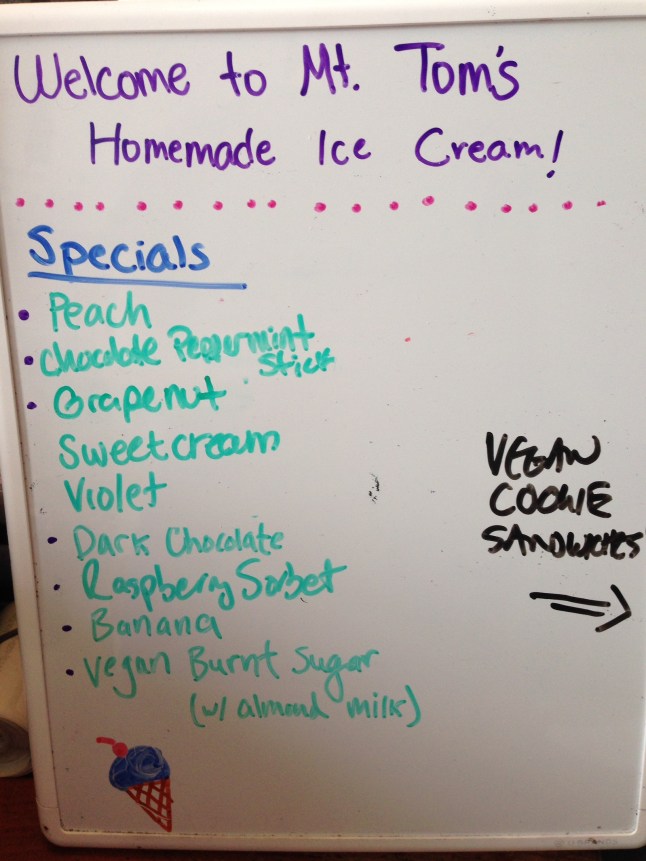 Welcome to Mt. Tom's
Homemade Ice Cream!
Specials
• Peach
• Chocolate Peppermint
Stick
• Grapenut
Sweetcream
Violet
• Dark Chocolate
• Raspberry Sorbet
• Banana
• Vegan Burnt Sugar
(w/ almond milk)
VEGAN
COOKIE
SANDWICHES